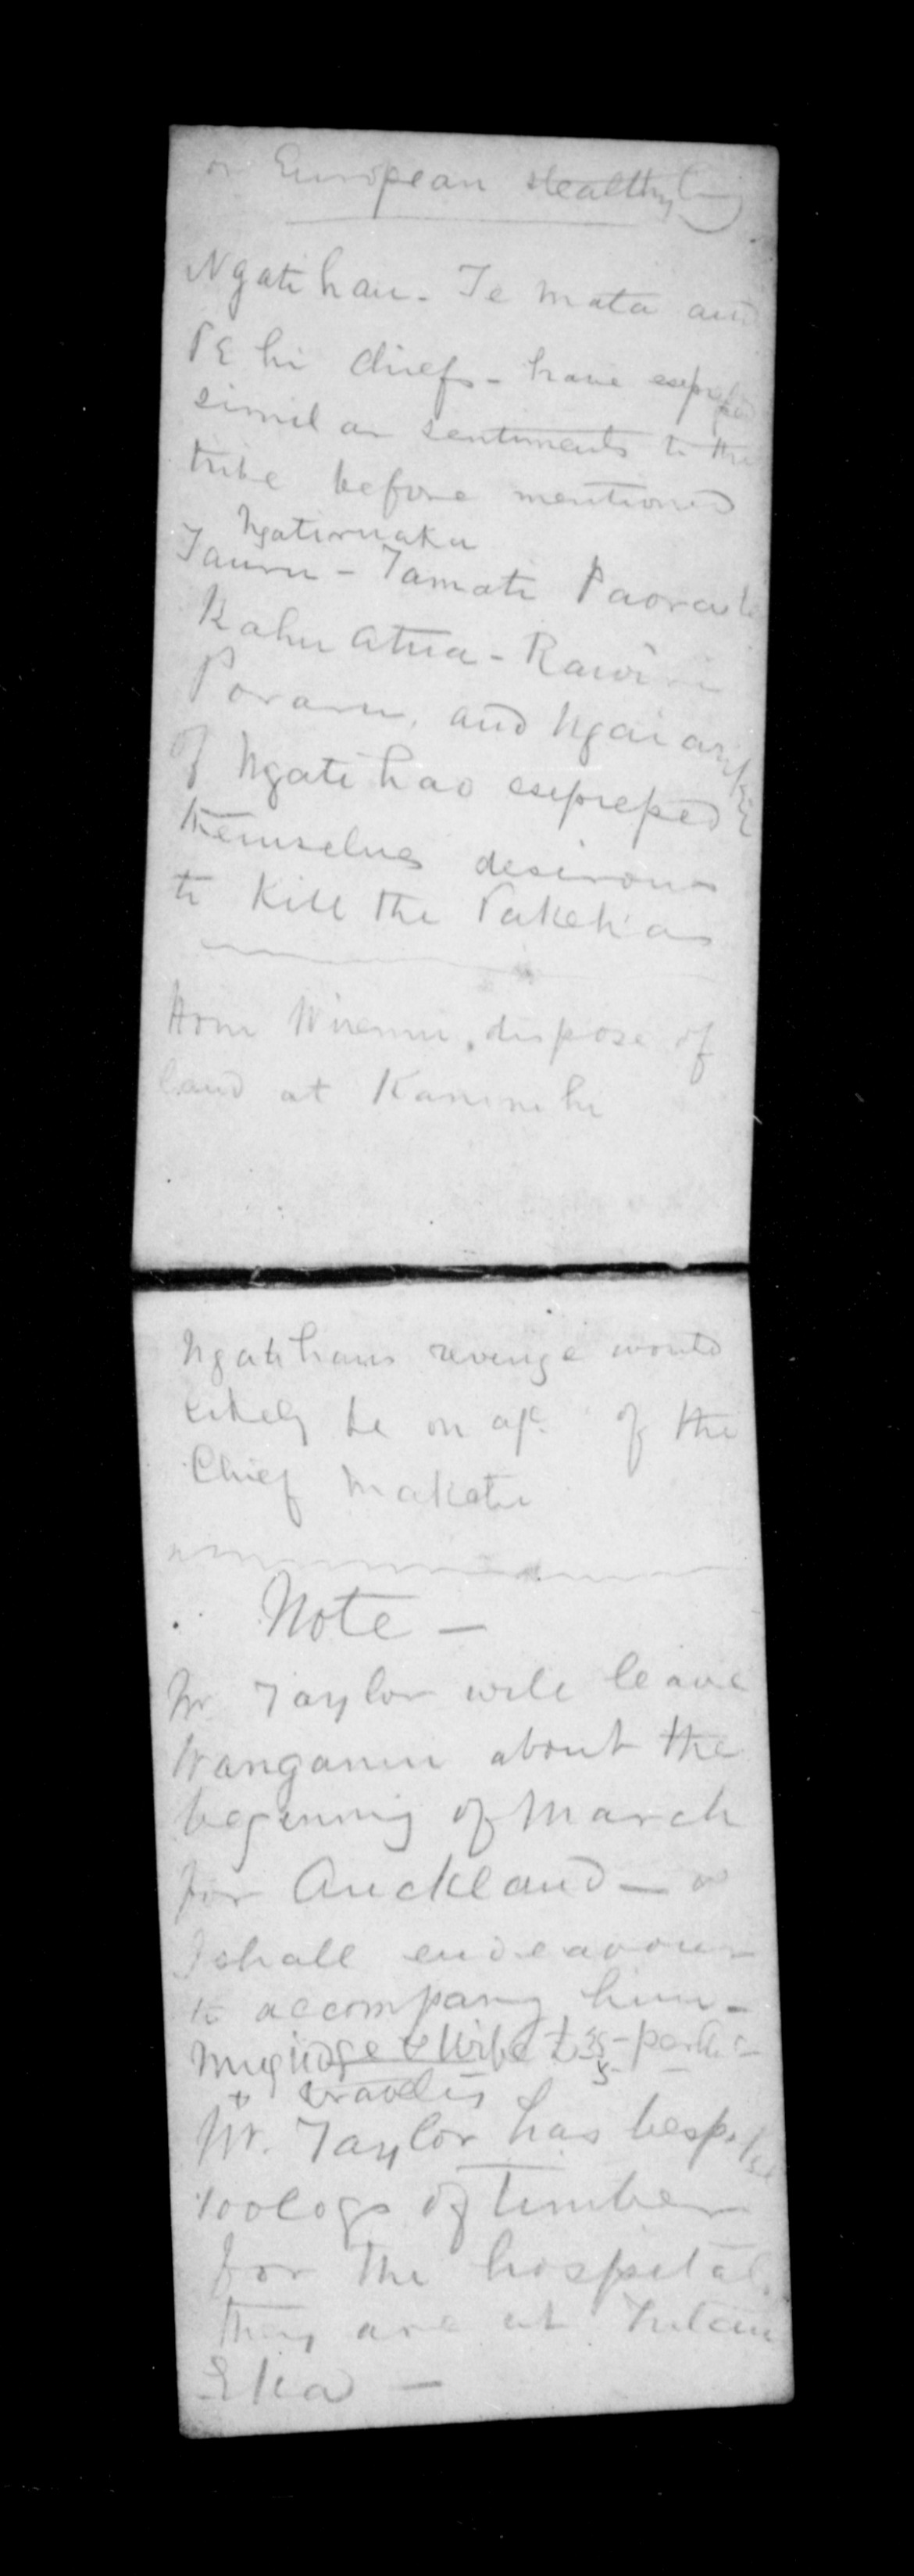 or European stealthy
Ngatihau - Te Mata and
PEhi chiefs - have expressed
similar sentiments to the
tribe before mentioned
Ngatiruaka
Tauru - Tamati Paora te
Kahu Atua - Rawiri
Poraru, and Ngai
of Ngatihao expressed
themselves desirous
to Kill the Pakehas
Hori Wiremu, dispose of
land at
Ngatihaus revenge would
likely be on a/c of the
Chief Maketu
Note -
Mr Taylor will leave
Wanganui about the
beginning of March
for Auckland - &
I shall endeavour
to accompany him -
& Wife
+ travelis
Mr. Taylor has bespoke
100 logs of timber
for the hospital
they are at